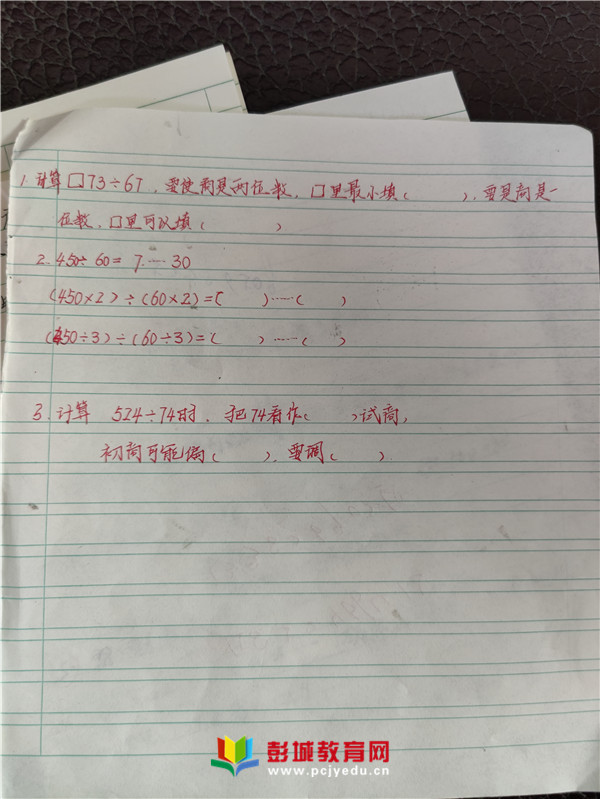 1. 计算□73÷67，要使商是两位数，□里最小填（ ），要是商是一
位数，□里可以填（ ）
2. 450÷60=7……30
(450×2)÷(60×2)=( )……( )
(450÷3)÷(60÷3)=( )……( )
3. 计算 524÷74时，把74看作( )试商，
初商可能偏( )，要调( ).
彭城教育网
www.pcjyedu.cn